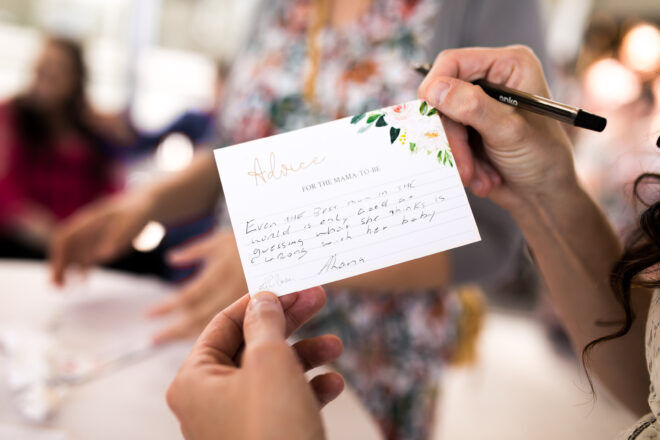 Advice
FOR THE MAMA-TO-BE
EVEN THE BEST mum IN THE
world is only GOOD at
guessing what she thinks is
wrong with her baby
anko